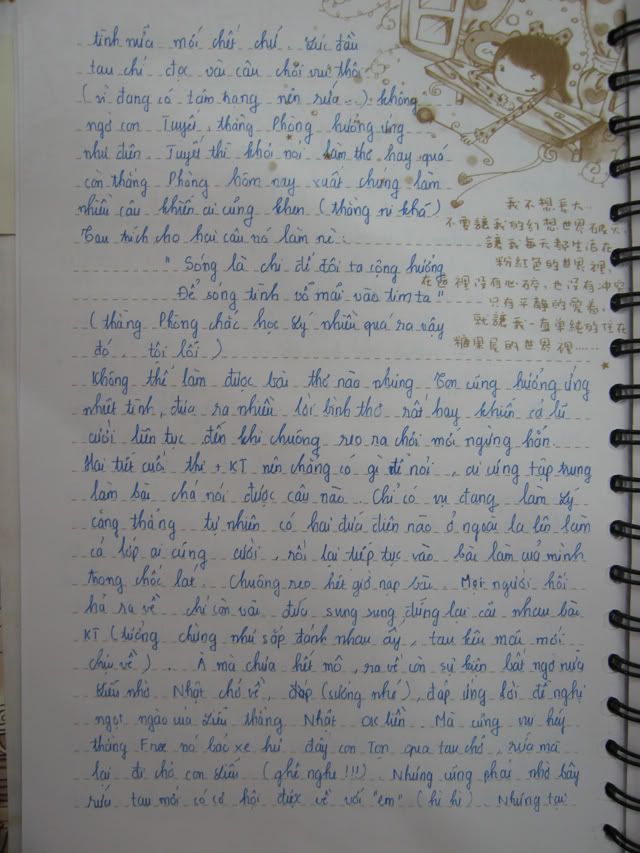 tình nữa mới chết chứ. Lúc đầu
tau chỉ đọc vài câu chơi vui thôi
(vì đang có tâm trạng nên rứa...) không
ngờ con Tuyết, thằng Phòng hưởng ứng
như điên. Tuyết thì khỏi nói làm thơ hay quá
còn thằng Phòng hôm nay xuất chúng làm
nhiều câu khiến ai cũng khen (thằng ni khá)
Tau thích cho hai câu nó làm nè:
" Sóng là chi để đôi ta cộng hưởng
Để sóng tình vỗ mãi vào tim ta "
(thằng Phòng chắc học Lý nhiều quá ra vậy
đó, tội lỗi)
我不想長大..
不要讓我的幻想世界破灭,
讓我每天都生活在
粉紅色的世界裡,
在這裡沒有心碎,也沒有冲突
只有平靜的愛着,
就讓我一直單純的住在
糖果屋的世界裡......
Không thể làm được bài thơ nào nhưng Tơn cũng hưởng ứng
nhiệt tình, đưa ra nhiều lời bình thơ rất hay khiến cả lũ
cười liên tục đến khi chuông reo ra chơi mới ngừng hẳn.
Hai tiết cuối thi + KT nên chẳng có gì để nói, ai cũng tập trung
làm bài chả nói được câu nào. Chỉ có vụ đang làm Lý
căng thẳng tự nhiên có hai đứa điên nào ở ngoài la lên làm
cả lớp ai cũng cười, rồi lại tiếp tục vào bài làm của mình
trong chốc lát. Chuông reo hết giờ nạp bài. Mọi người hối
hả ra về chỉ còn vài đứa sung sung đứng lại cãi nhau bài
KT (tưởng chừng như sắp đánh nhau ấy, tau kêu mấy mới
chịu về). À mà chưa hết mô, ra về còn sự kiện bất ngờ nữa
Liễu nhờ Nhật chở về, đáp (sướng nhé), đáp ứng lời đề nghị
ngọt ngào của Liễu thằng Nhật ok liền. Mà cũng vui hấy
thằng Free nó bảo xe hư đẩy con Tơn qua tau chở, rứa mà
lại đi chở con Liễu (ghê nghe!!!). Nhưng cũng phải nhờ bây
rứa tau mới có cơ hội được về với "em" (hi hi). Nhưng tại